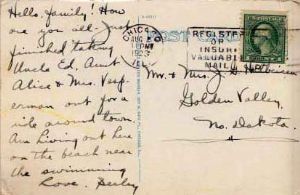 Hello, family! How
are you all. Just
finished taking
Uncle Ed, Aunt
Alice & Mrs.
out for a
ride around town.
Am living out here
on the beach near
the swimming
Love.
POST CARD
CHICAGO
AUG
1923
ILL.
REGISTER
OR
INSURE
VALUABLE
MAIL
Mr. & Mrs. J.
Golden Valley,
No. Dakota